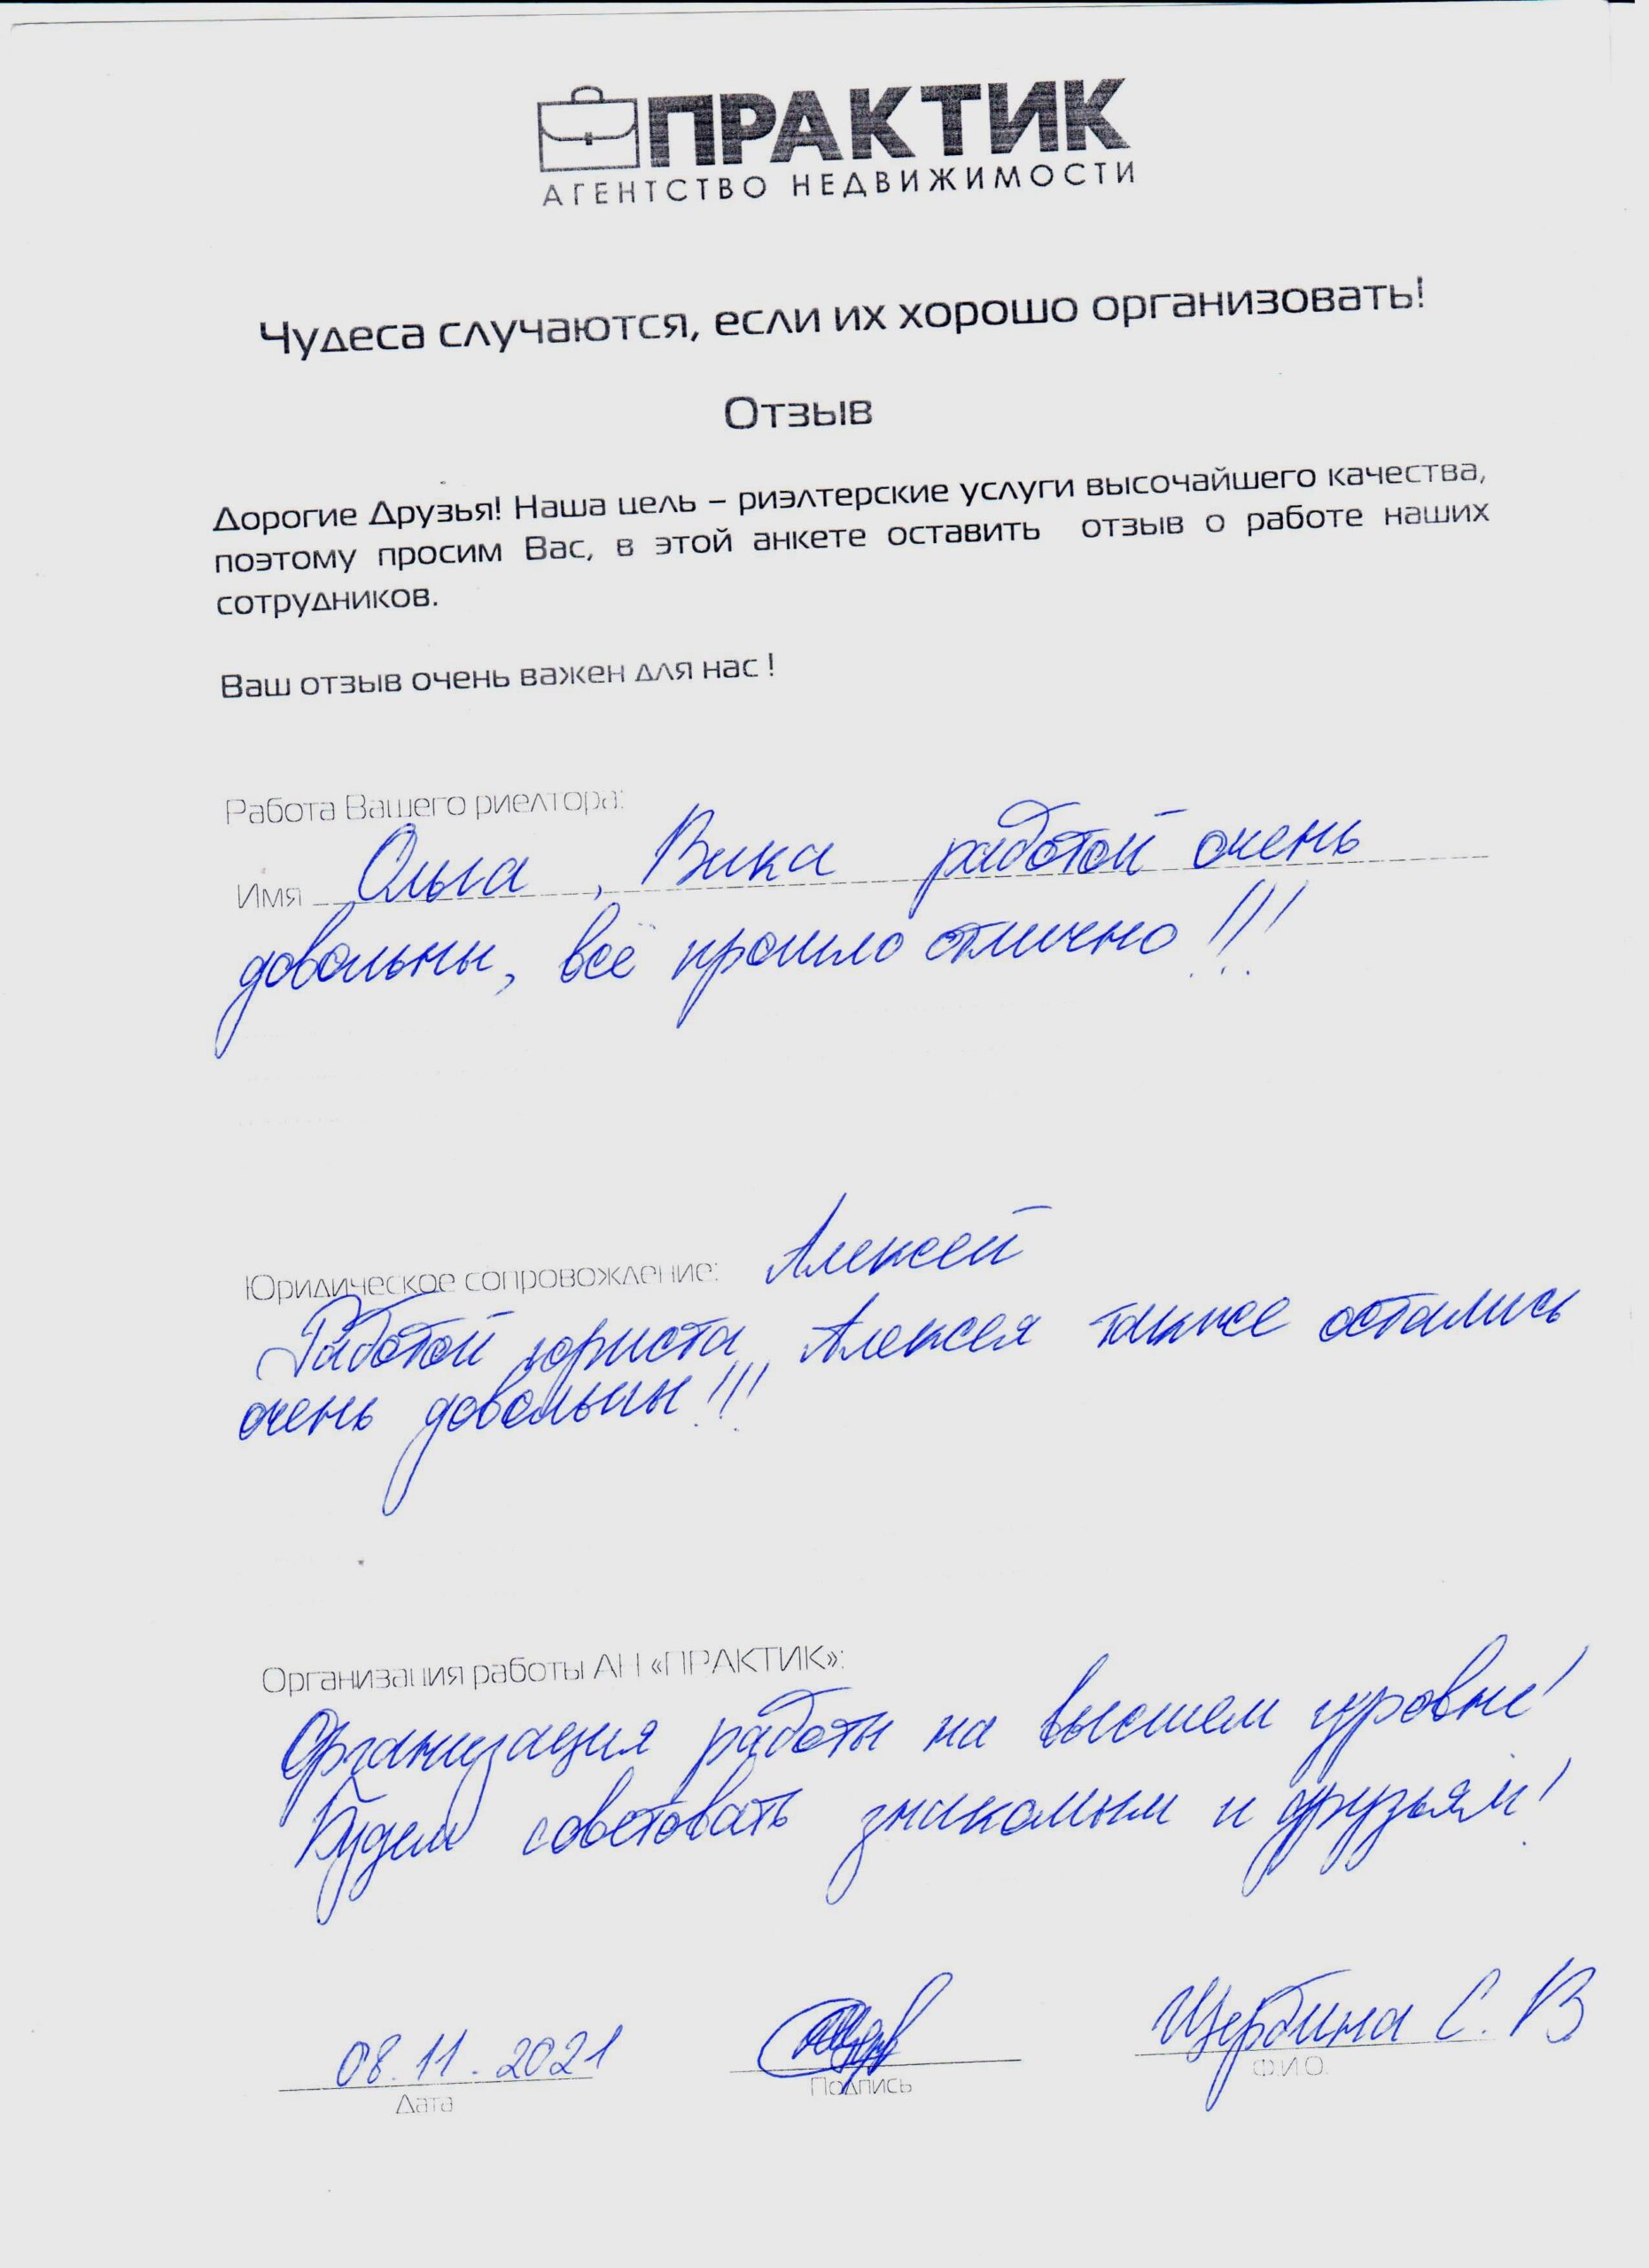 ПРАКТИК
АГЕНТСТВО НЕДВИЖИМОСТИ
Чудеса случаются, если их хорошо организовать!
Отзыв
Дорогие Друзья! Наша цель – риэлтерские услуги высочайшего качества,
поэтому просим Вас, в этой анкете оставить отзыв о работе наших
сотрудников.
Ваш отзыв очень важен для нас !
Работа Вашего риелтора:
Имя Ольга , Вика работой очень
довольны, всё прошло отлично !!!
Юридическое сопровождение: Алексей
Работой юриста Алексея также остались
очень довольны !!!
Организация работы АН «ПРАКТИК»:
Организация работы на высшем уровне!
Будем советовать знакомым и друзьям!
08.11.2021 Щербина С. В
Дата Подпись Ф.И.О.